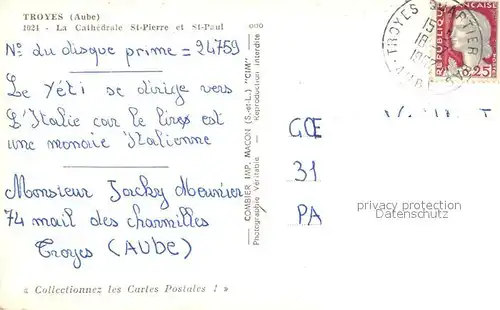 TROYES (Aube)
1024 - La Cathédrale St-Pierre et St-Paul
N° du disque prime = 24759
Le Yéti se dirige vers
L'Italie car le lires est
une monaie Italienne
Monsieur Jacky Meunier
74 mail des charmilles
Troyes (AUBE)
« Collectionnez les Cartes Postales ! »
COMBIER IMP. MACON (S.-et-L.) "CIM"
Photographie Véritable - Reproduction interdite
TROYES
15
18-
AUBE
REPUBLIQUE FRANÇAISE
0,25
GŒ
31
PA
privacy protection
Datenschutz